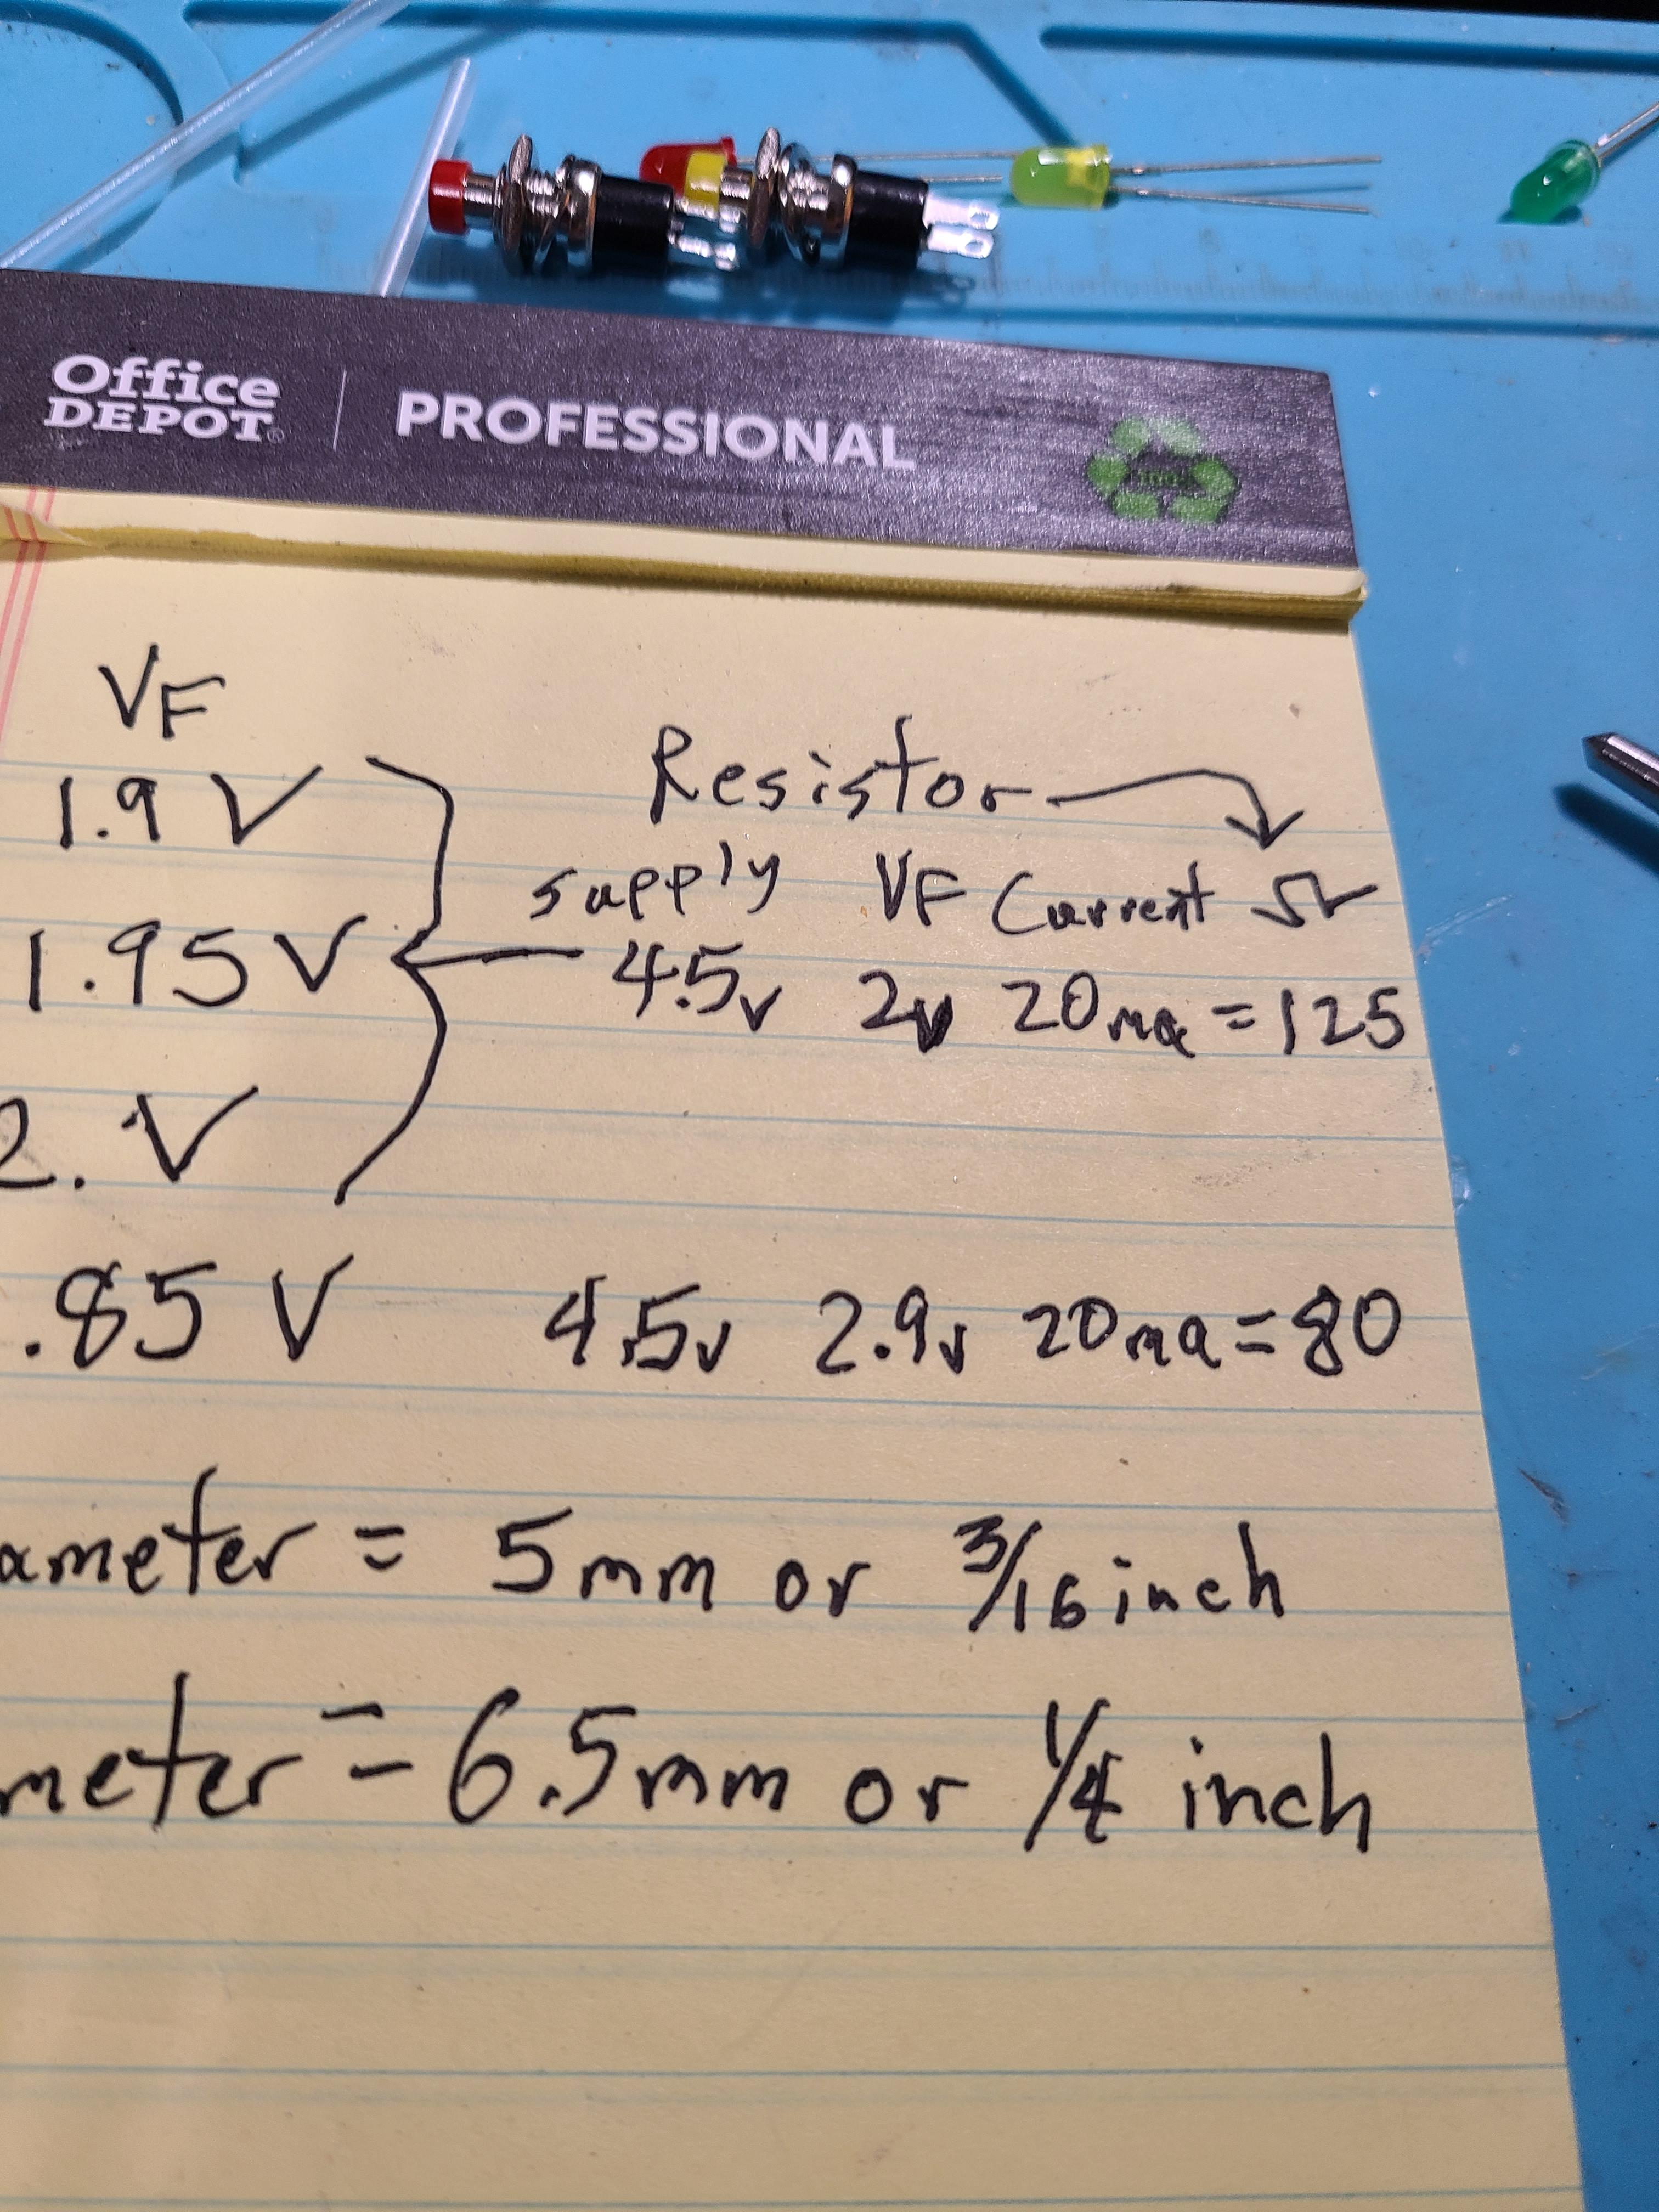 Office DEPOT® | PROFESSIONAL
VF
Resistor
1.9 V
supply VF Current Ω
1.95 V 4.5v 2v 20ma = 125
2. V
.85 V 4.5v 2.9v 20ma = 80
ameter = 5mm or 3/16 inch
meter = 6.5mm or 1/4 inch